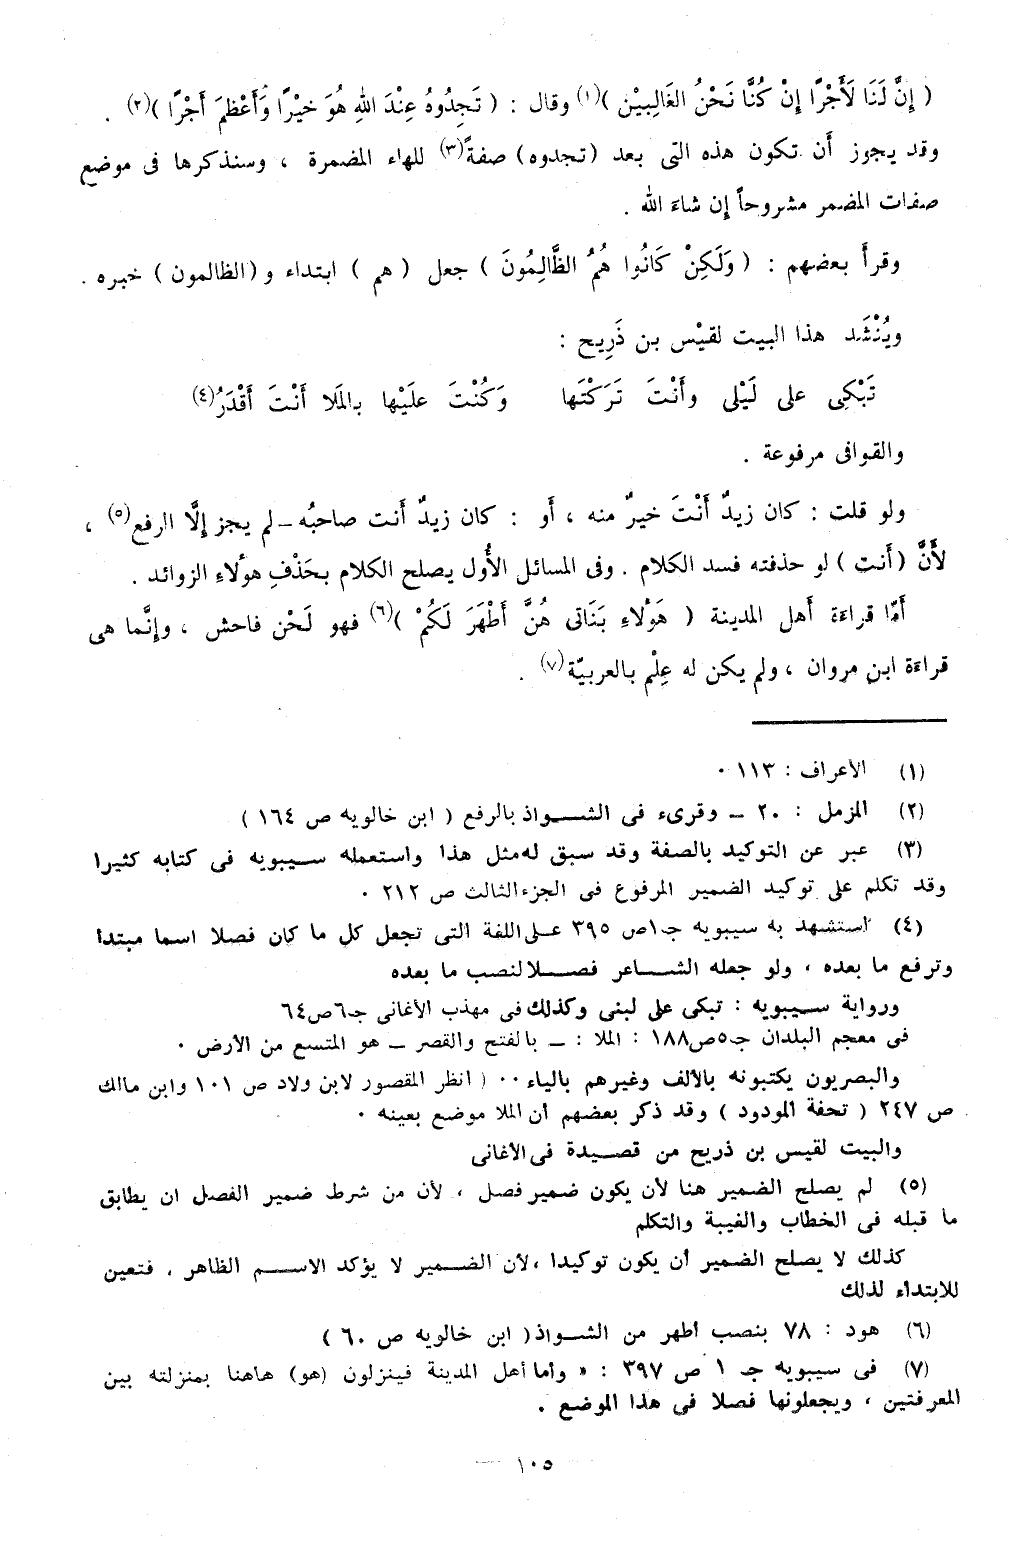 ( إِنَّ لَنَا لَأَجْرًا إِنْ كُنَّا نَحْنُ الغَالِبِيْن )(١) وقال : ( تَجِدُوهُ عِنْدَ اللهِ هُوَ خَيْرًا وَأَعْظَمَ أَجْرًا )(٢) .
وقد يجوز أَن تكون هذه التى بعد (تجدوه) صفةً(٣) للهاء المضمرة ، وسنذكرها فى موضع
صفات المضمر مشروحاً إن شاءَ الله .
وقرأَ بعضهم : ( وَلَكِنْ كَانُوا هُمُ الظَّالِمُونَ ) جعل ( هم ) ابتداء و (الظالمون ) خبره .
ويُنْشَد هذا البيت لقيْس بن ذَرِيح :
تَبْكِى على لَيْلى وأَنْتَ تَرَكْتَها وَكُنْتَ علَيْها بالمَلا أَنْتَ أَقْدَرُ(٤)
والقوافى مرفوعة .
ولو قلت : كان زيدٌ أَنْتَ خيرٌ منه ، أَو : كان زيدٌ أَنت صاحبُه ــ لم يجز إِلَّا الرفع(٥) ،
لأَنَّ (أَنت ) لو حذفته فسد الكلام . وفى المسائل الأُول يصلح الكلام بحَذْفِ هؤلاءِ الزوائد .
أَمّا قراءَة أَهل المدينة ( هَؤْلاءِ بَنَاتى هُنَّ أَطْهَرَ لَكُمْ )(٦) فهو لَحْن فاحش ، وإنَّما هى
قراءَة ابن مروان ، ولم يكن له عِلْم بالعربيّة(٧) .
(١) الأعراف : ١١٣ .
(٢) المزمل : ٢٠ ــ وقرىء فى الشــواذ بالرفع ( ابن خالويه ص ١٦٤ )
(٣) عبر عن التوكيد بالصفة وقد سبق له مثل هذا واستعمله سيبويه فى كتابه كثيرا
وقد تكلم على توكيد الضمير المرفوع فى الجزء الثالث ص ٢١٢ .
(٤) استشهد به سيبويه جـ١ص ٣٩٥ على اللغة التى تجعل كل ما كان فصلا اسما مبتدأ
وترفع ما بعده ، ولو جعله الشــاعر فصــلا لنصب ما بعده
ورواية سيبويه : تبكى على لبنى وكذلك فى مهذب الأغانى جـ٦ص٦٤
فى معجم البلدان جـ٥ص١٨٨ : الملا : ــ بالفتح والقصر ــ هو المتسع من الأرض .
والبصريون يكتبونه بالألف وغيرهم بالياء .. ( انظر المقصور لابن ولاد ص ١٠١ وابن مالك
ص ٢٤٧ ( تحفة المودود ) وقد ذكر بعضهم أن الملا موضع بعينه .
والبيت لقيس بن ذريح من قصــيدة فى الأغانى
(٥) لم يصلح الضمير هنا لأن يكون ضمير فصل ، لأن من شرط ضمير الفصل ان يطابق
ما قبله فى الخطاب والغيبة والتكلم
كذلك لا يصلح الضمير أن يكون توكيدا ، لأن الضــمير لا يؤكد الاســم الظاهر ، فتعين
للابتداء لذلك
(٦) هود : ٧٨ بنصب أطهر من الشــواذ ( ابن خالويه ص ٦٠ )
(٧) فى سيبويه جـ ١ ص ٣٩٧ : « وأما أهل المدينة فينزلون (هو) هاهنا بمنزلته بين
المعرفتين ، ويجعلونها فصلا فى هذا الموضع .
ــ ١٠٥ ــ